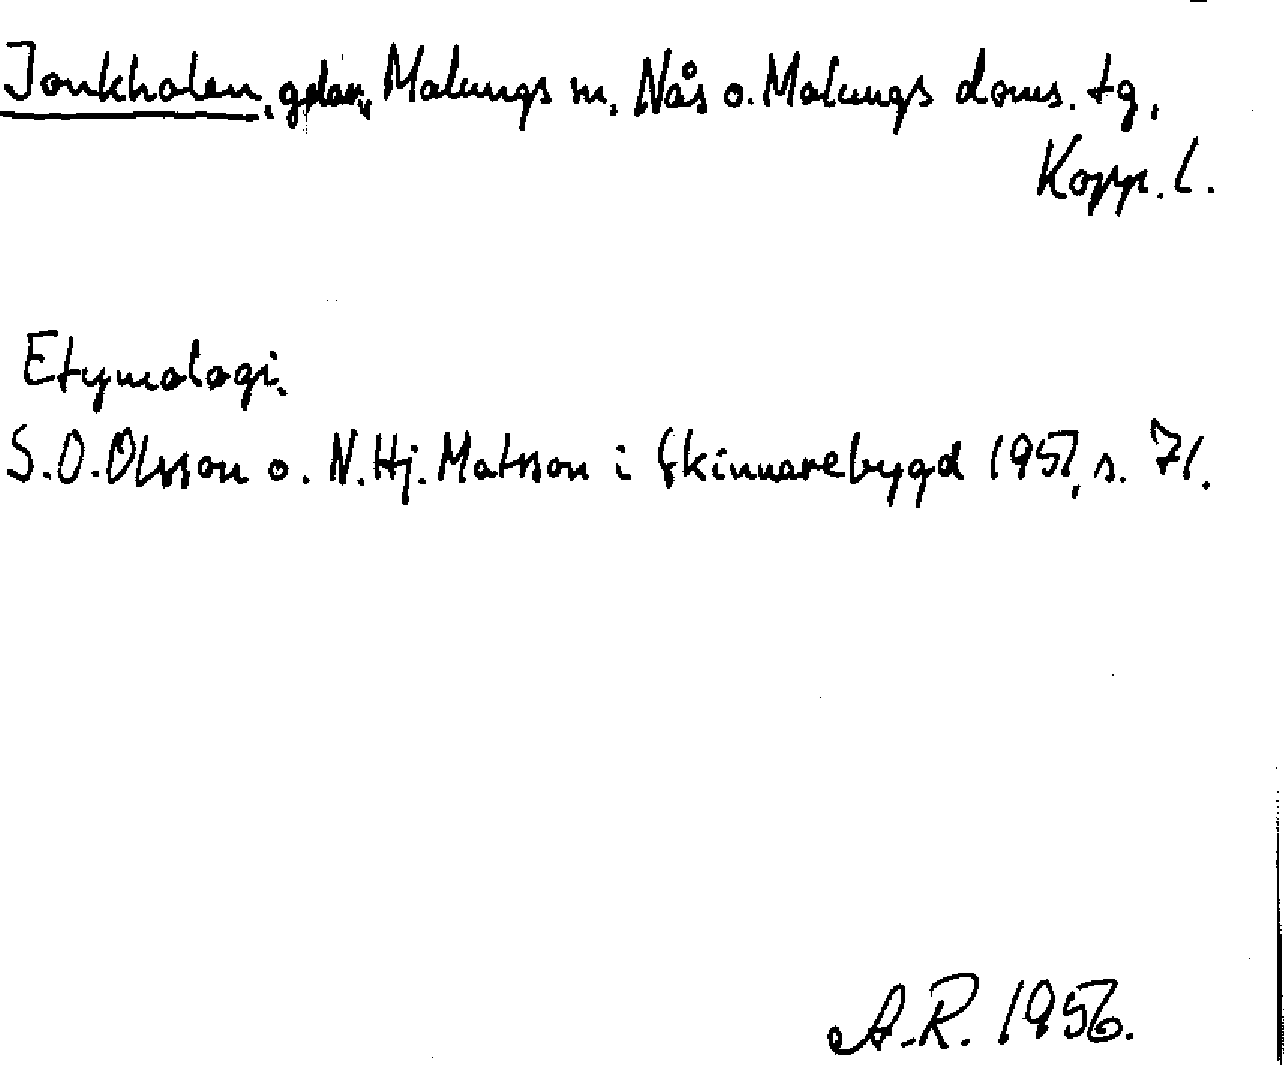 Jonkholen, gdar, Malungs sn, Nås o. Malungs doms. tg,
Kopp. l.
Etymologi.
S.O.Olsson o. N.Hj.Matsson i Skinnarebygd 1951, s. 71.
A.R. 1956.